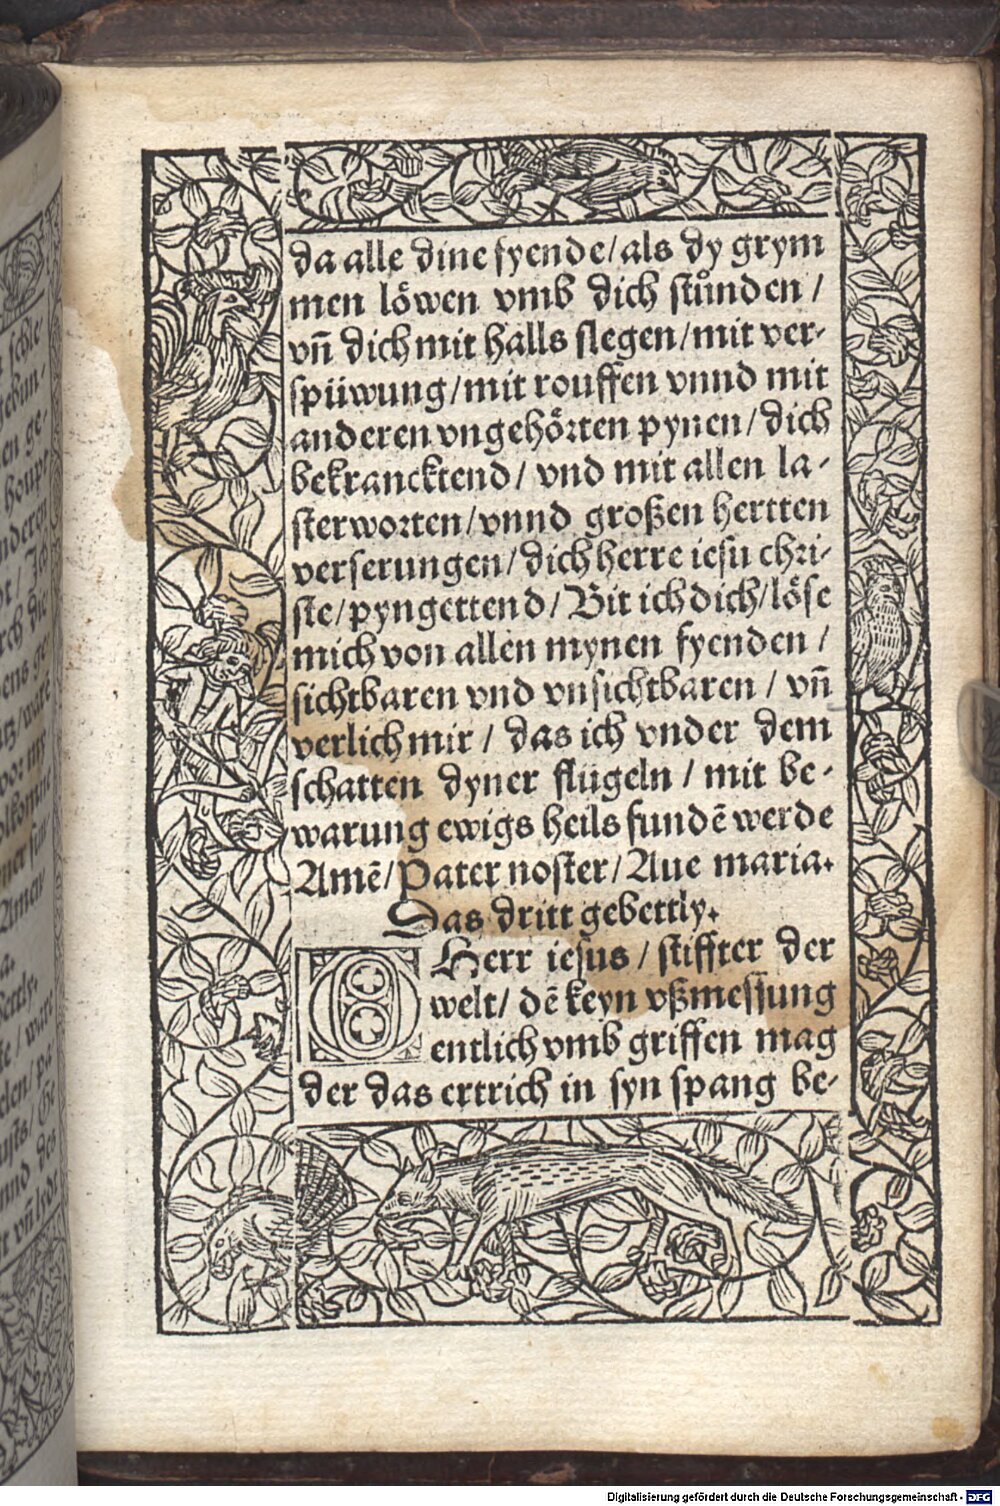 da alle dine fyende/als dy grym
men löwen vmb dich stůnden /
vn̄ dich mit halls slegen/mit ver-
spüwung/mit rouffen vnnd mit
anderen vngehörten pynen/dich
bekrancktend/ vnd mit allen la-
sterworten/vnnd großen hertten
verserungen/dich herre iesu chri-
ste/pyngettend/Bit ich dich/löse
mich von allen mynen fyenden /
sichtbaren vnd vnsichtbaren / vn̄
verlich mir / das ich vnder dem
schatten dyner flügeln / mit be-
warung ewigs heils fundē werde
Amē/Pater noster/Aue maria.
Das dritt gebettly.
O Herr iesus / stiffter der
welt/ dē keyn vßmessung
entlich vmb griffen mag
der das ertrich in syn spang be-
Digitalisierung gefördert durch die Deutsche Forschungsgemeinschaft - DFG